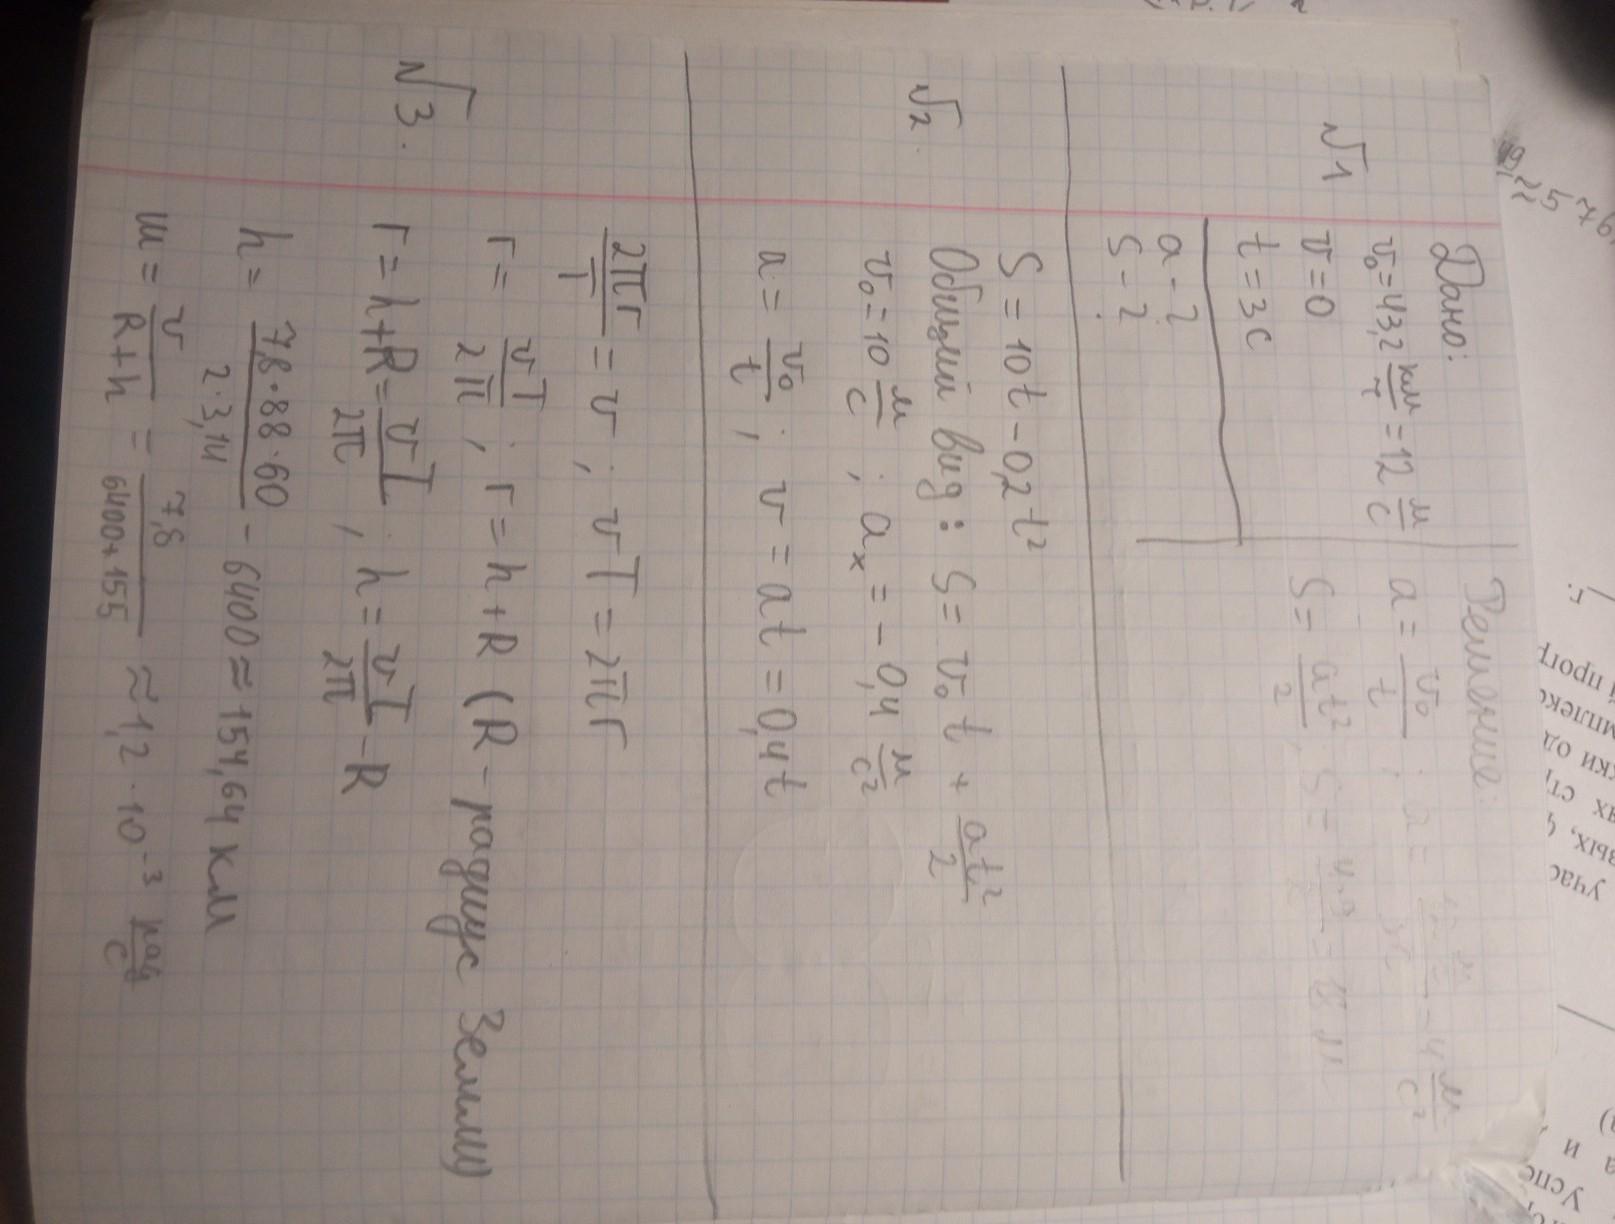 √1
Дано:
v₀ = 43,2 км/ч = 12 м/с
v = 0
t = 3 с
a - ?
S - ?
Решение:
a = v₀/t ; a = 12 м/с / 3с = 4 м/с²
S = at²/2 , S = 4·9/2 = 18 м
√2.
S = 10t - 0,2t²
Общий вид: S = v₀t + at²/2
v₀ = 10 м/с ; aₓ = - 0,4 м/с²
a = v₀/t ; v = at = 0,4t
√3.
2πr/T = v ; vT = 2πr
r = vT/2π ; r = h + R (R - радиус Земли)
r = h + R = vT/2π ; h = vT/2π - R
h = 7,8·88·60/2·3,14 - 6400 ≈ 154,64 км
ω = v/R+h = 7,8/6400+155 ≈ 1,2·10⁻³ рад/с